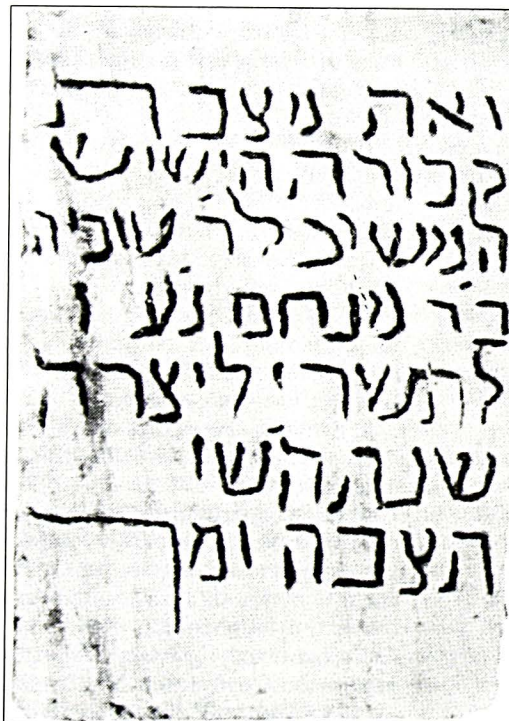 זאת מצבת
קבורת הישיש
המשכיל ר' טוביה
בר מנחם נע ז
לתשרי ליצרה
שנת ה'שי
תצבה ומך